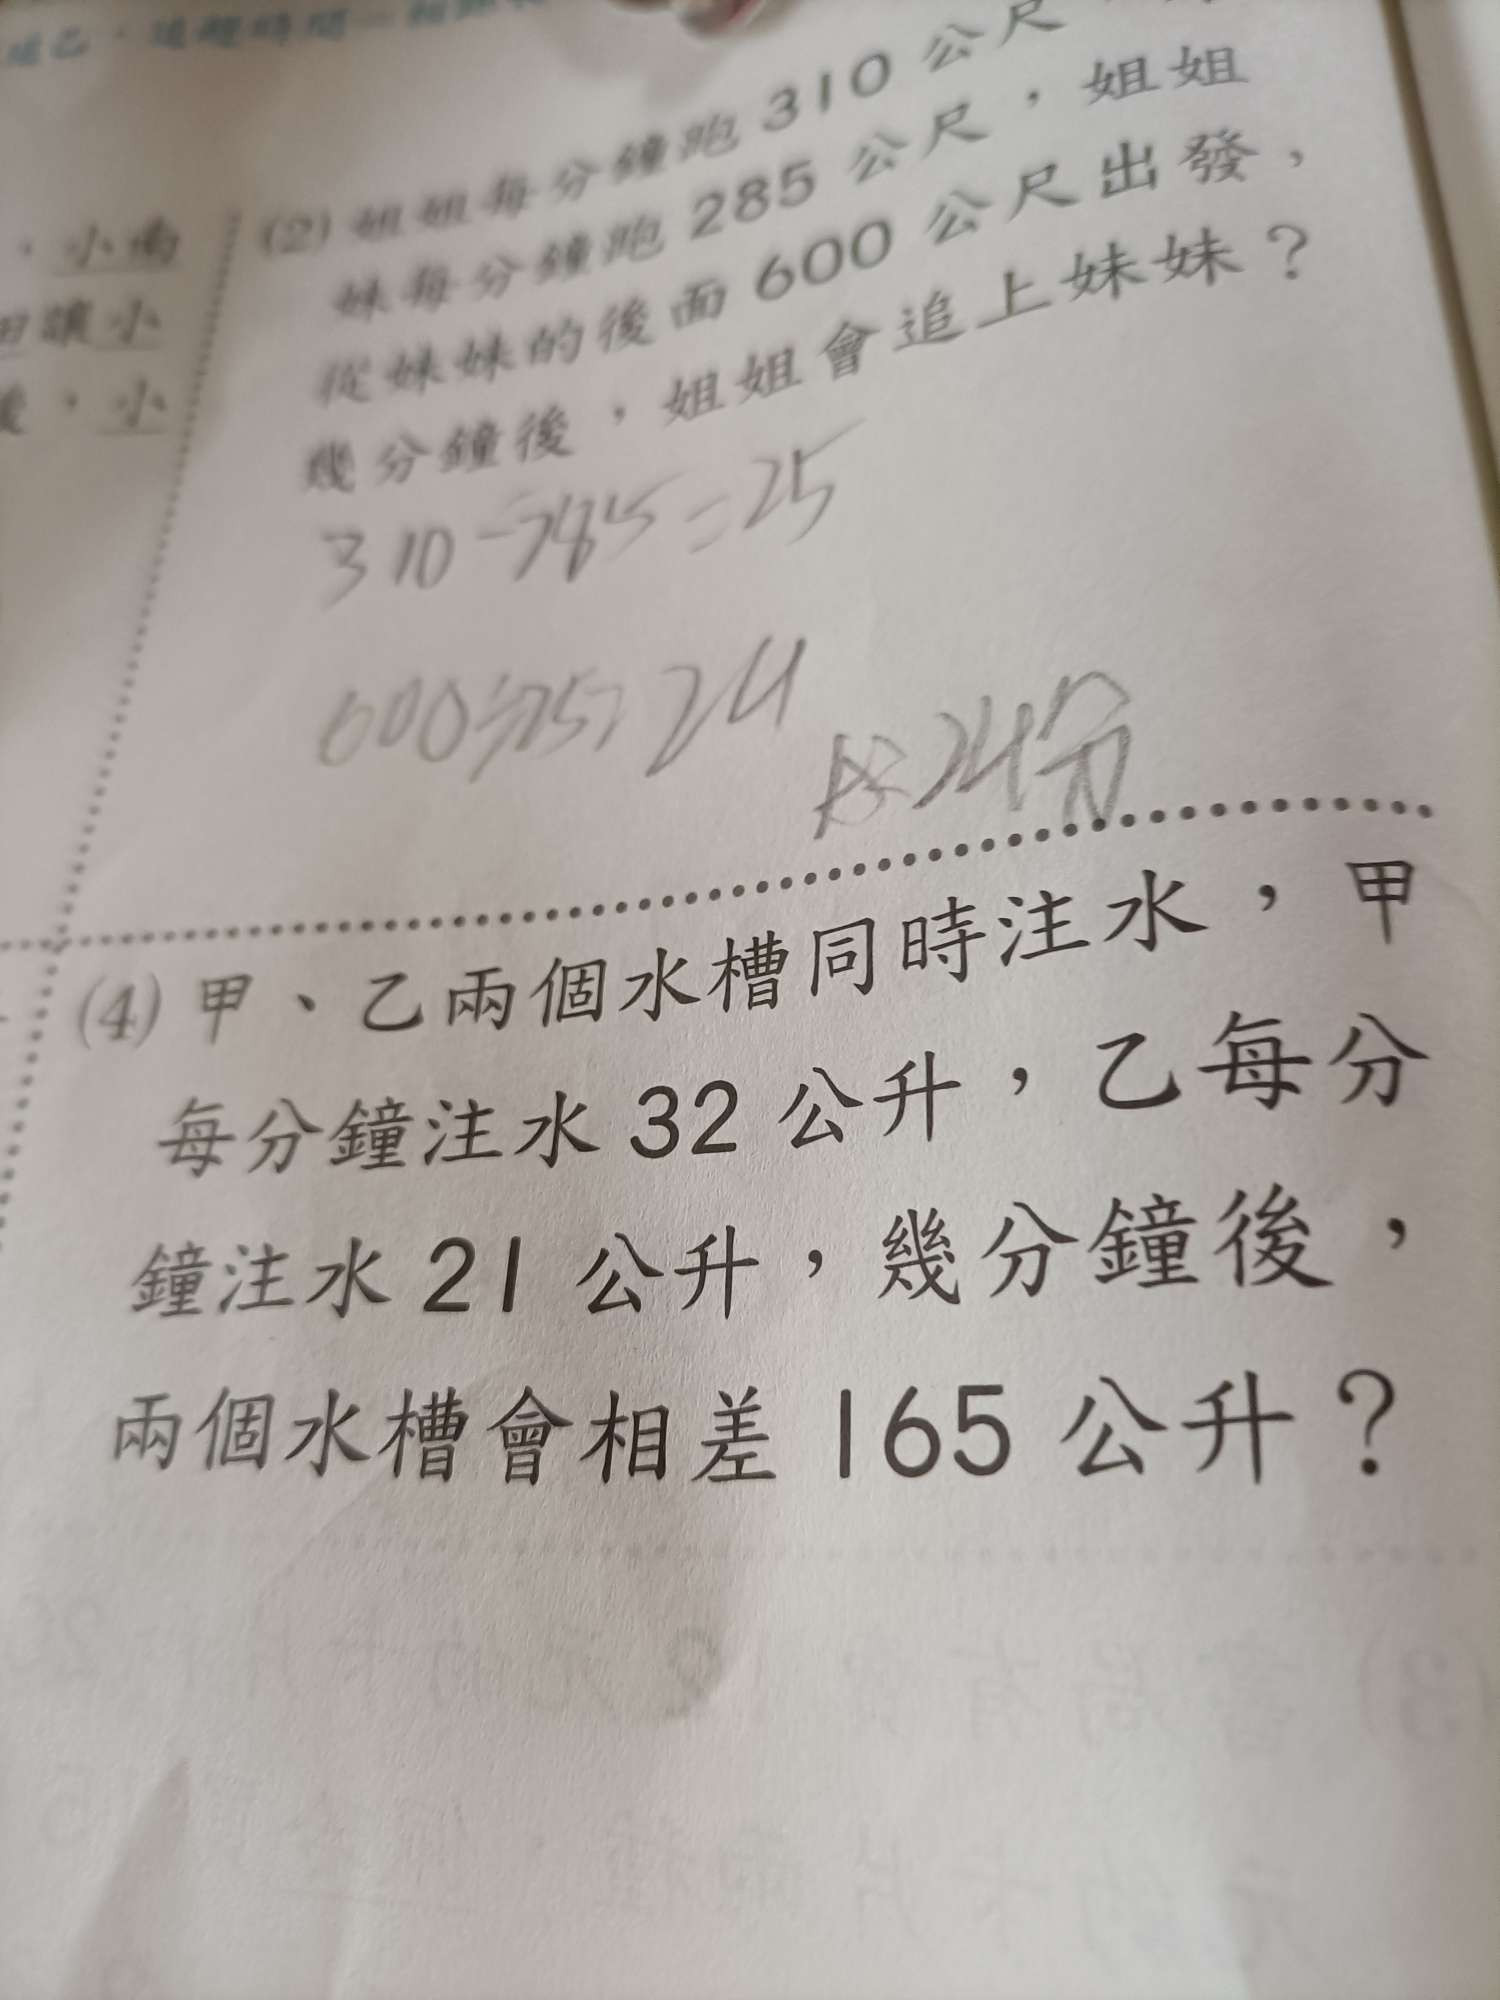 小
讓小
，小
(2) 姐姐每分鐘跑 310 公尺，
妹每分鐘跑 285 公尺，姐姐
從妹妹的後面 600 公尺出發，
幾分鐘後，姐姐會追上妹妹？
310-285=25
600÷25=24
A:24分
(4) 甲、乙兩個水槽同時注水，甲
每分鐘注水 32 公升，乙每分
鐘注水 21 公升，幾分鐘後，
兩個水槽會相差 165 公升？